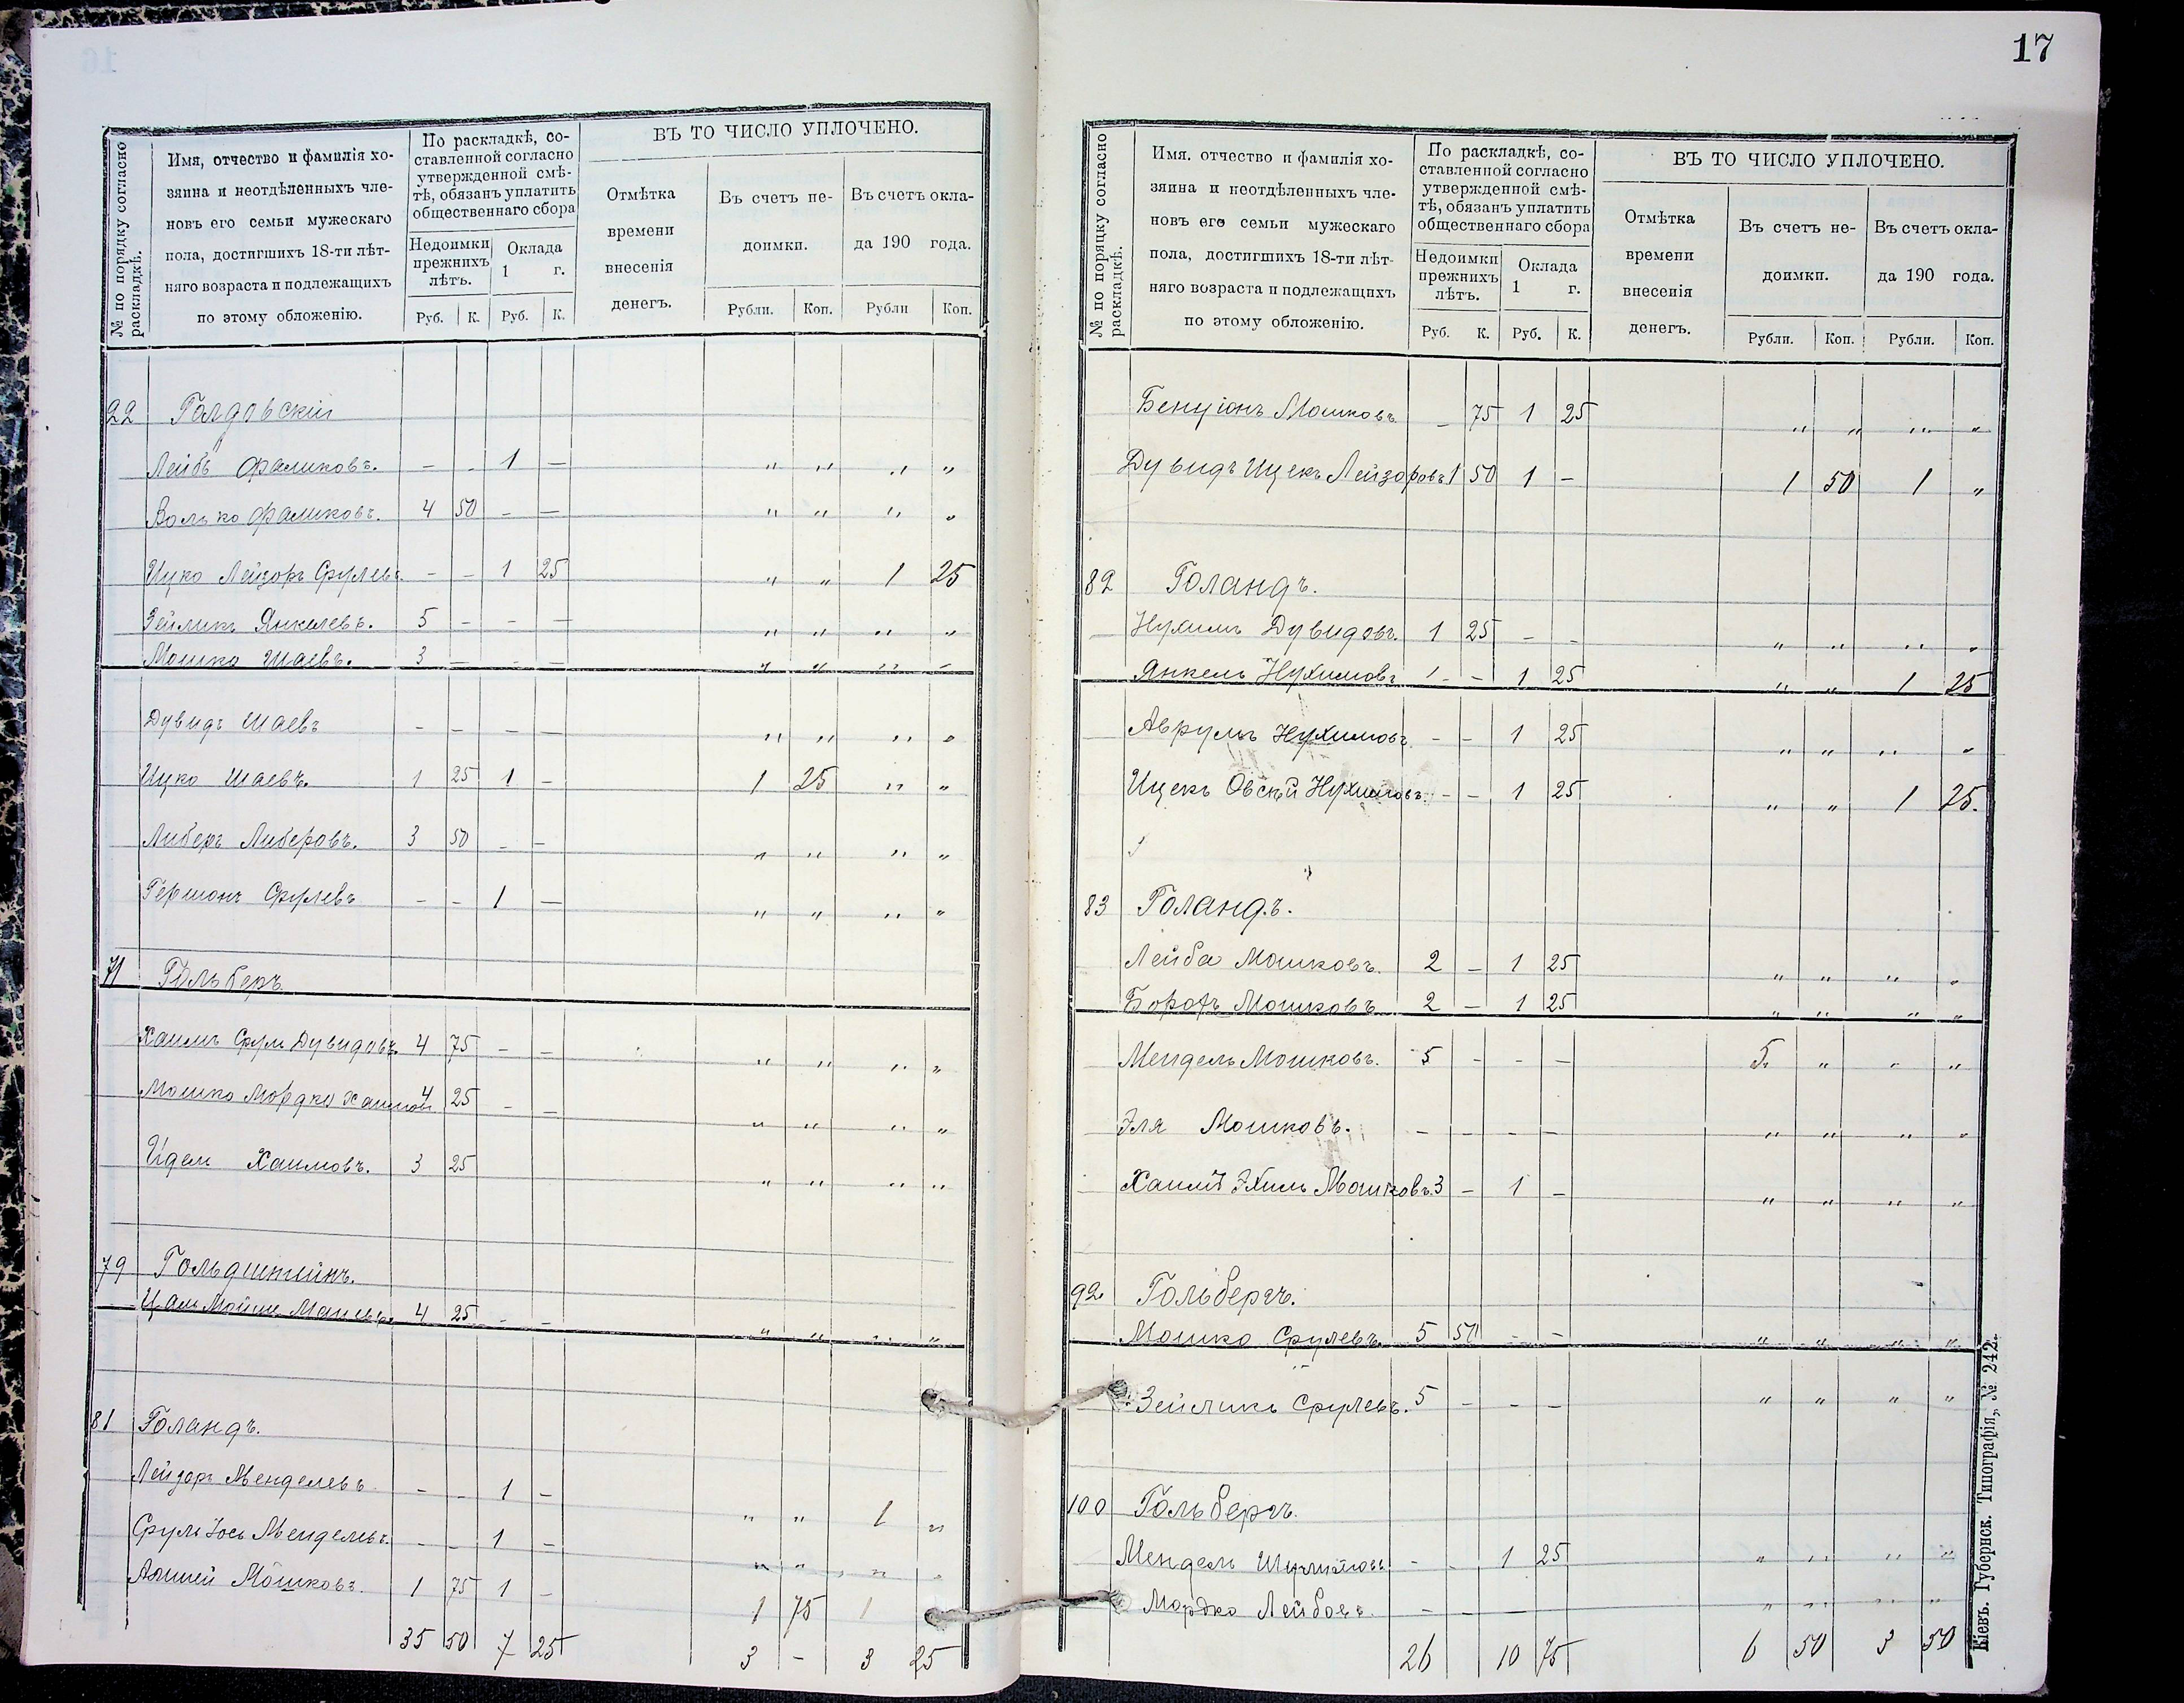 17
№ по порядку согласно раскладкѣ.
Имя, отчество и фамилія хо-
зяина и неотдѣленныхъ чле-
новъ его семьи мужескаго
пола, достигшихъ 18-ти лѣт-
няго возраста и подлежащихъ
по этому обложенію.
По раскладкѣ, со-
ставленной согласно
утвержденной смѣ-
тѣ, обязанъ уплатить
общественнаго сбора
Недоимки
прежнихъ
лѣтъ.
Оклада
1 г.
Руб. К. Руб. К.
ВЪ ТО ЧИСЛО УПЛОЧЕНО.
Отмѣтка
времени
внесенія
денегъ.
Въ счетъ не-
доимки.
Въ счетъ окла-
да 190 года.
Рубли. Коп. Рубли Коп.
22 Голдовскій
Лейбъ Фаликовъ. – – 1 – " " " "
Волько Фаликовъ. 4 50 – – " " " "
Ицко Лейзоръ Срулевъ – – 1 25 " " 1 25
Зейликъ Янкелевъ. 5 – – – " " " "
Мошко Шаевъ. 3 – – – " " " "
Дувидъ Шаевъ – – – – " " " "
Ицко Шаевъ. 1 25 1 – 1 25 " "
Либеръ Либеровъ. 3 50 – – " " " "
Гершонъ Срулевъ – – 1 – " " " "
71 Гольберъ
Хаимъ Сруль Дувидовъ 4 75 – – " " " "
Мошко Мордко Хаимовъ 4 25 – – " " " "
Идель Хаимовъ. 3 25 " " " "
79 Гольдштейнъ.
4 25 – – " " " "
81 Голандъ.
Лейзоръ Менделевъ – – 1 – " " 1 "
Сруль Іось Менделевъ. – – 1 – " " " "
Мошковъ. 1 75 1 – 1 75 1
35 50 7 25 3 – 3 25
№ по порядку согласно раскладкѣ.
Имя, отчество и фамилія хо-
зяина и неотдѣленныхъ чле-
новъ его семьи мужескаго
пола, достигшихъ 18-ти лѣт-
няго возраста и подлежащихъ
по этому обложенію.
По раскладкѣ, со-
ставленной согласно
утвержденной смѣ-
тѣ, обязанъ уплатить
общественнаго сбора
Недоимки
прежнихъ
лѣтъ.
Оклада
1 г.
Руб. К. Руб. К.
ВЪ ТО ЧИСЛО УПЛОЧЕНО.
Отмѣтка
времени
внесенія
денегъ.
Въ счетъ не-
доимки.
Въ счетъ окла-
да 190 года.
Рубли. Коп. Рубли. Коп.
Бенціонъ Мошковъ – 75 1 25 " " " "
Дувидъ Ицекъ Лейзоровъ 1 50 1 – 1 50 1 "
82 Голандъ.
Нухимъ Дувидовъ. 1 25 – – " " " "
Янкель Нухимовъ – – 1 25 " " 1 25
Аврумъ Нухимовъ – – 1 25 " " " "
Ицекъ Овсѣй Нухимовъ – – 1 25 " " 1 25.
83 Голандъ.
Лейба Мошковъ. 2 – 1 25 " " " "
Борохъ Мошковъ 2 – 1 25 " " " "
Мендель Мошковъ. 5 – – – 5 " " "
Эля Мошковъ. – – – – " " " "
Хаимъ Эхиль Мошковъ. 3 – 1 – " " " "
92 Гольбергъ.
Мошко Срулевъ. 5 50 – – " " " "
Зейликъ Срулевъ. 5 – – – " " " "
100 Гольбергъ.
Мендель – – 1 25 " " " "
Мордко Лейбовъ. – – – " " " "
26 10 75 6 50 3 50
Кіевъ. Губернск. Типографія, № 242.